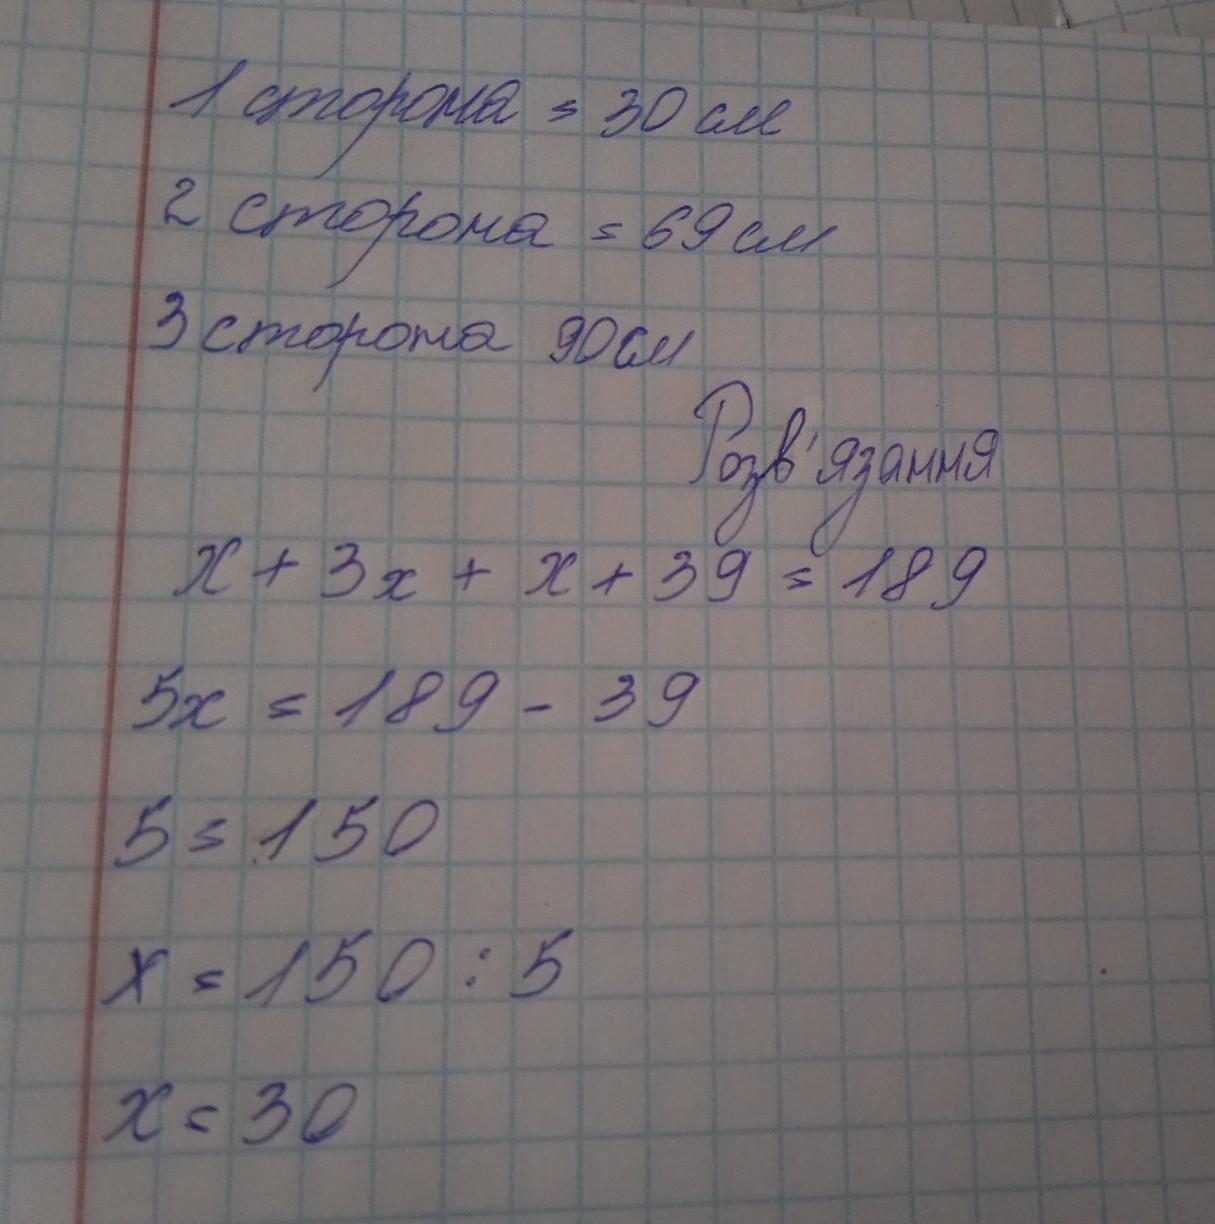 1 сторона = 30 см
2 сторона = 69 см
3 сторона 90 см
Розв'язання
x + 3x + x + 39 = 189
5x = 189 - 39
5 = 150
x = 150 : 5
x = 30